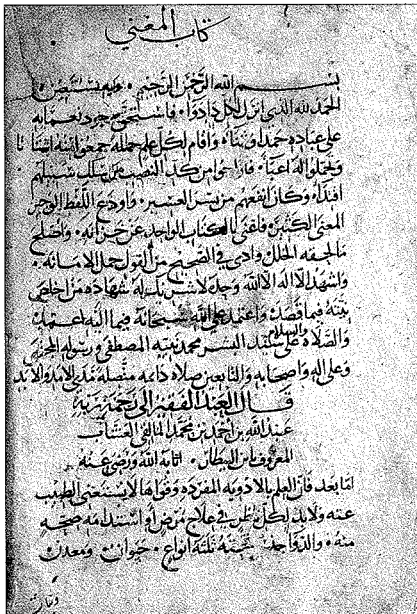 كتاب المغني
بسم الله الرحمن الرحيم وبه نستعين
الحمد لله الذي انزل لكل دا دوا فاستحق بوجود نعمايه
على عباده حمدا وثناء واقام لكل علم حملة جمعوا
وحملوا اعباء فاراحوا من كد من سلك سبيلهم
اقتداء وكان انفعهم من يسر العسير واودع اللفظ الوجيز
المعنى الكثير بالكتاب الواحد عن خزانه واصلح
ما لحقه الخلل وادى في الصحيح من القول حمل الامانه
واشهد ان لا اله الا الله وحده لا شريك له شهاده من اخلص
نيته فيما قصد واعتمد على الله سبحانه فيما
والصلاة والسلام على سيد البشر محمد نبيه المصطفى ورسوله
وعلى اله واصحابه والتابعين صلاة دايمه متصله مدى الامد والابد
قال العبد الفقير الى رحمة ربه
عبد الله بن احمد بن محمد المالقي العشاب
المعروف بابن البيطار اثابه الله ورضي عنه
اما بعد فان العلم بالادويه المفرده وقواها لا يستغني الطبيب
عنه ولا بد لكل من نظر في علاج مرض او استدامه صحه
منه والدوا جنسه ثلثه انواع حيوان ومعدن
ونبات